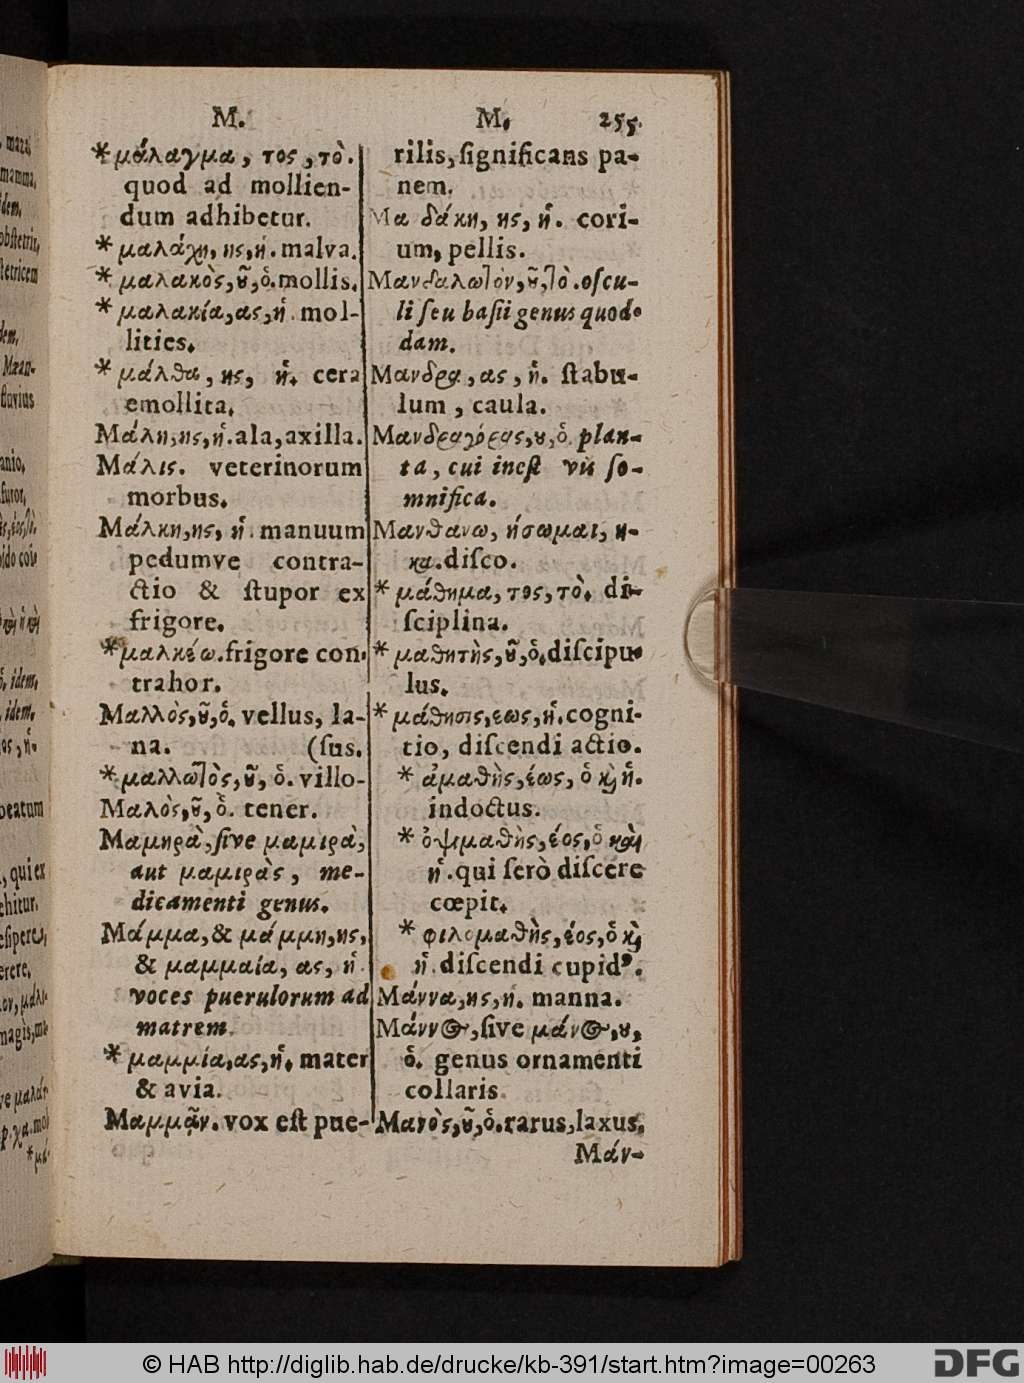 M.
*μάλαγμα, τος, τὸ.
quod ad mollien-
dum adhibetur.
*μαλάχη, ης, ἡ. malva.
*μαλακὸς, ȣ͂, ὁ. mollis.
*μαλακία, ας, ἡ. mol-
lities.
*μάλθα, ης, ἡ. cera
emollita.
Μάλη, ης, ἡ. ala, axilla.
Μάλις. veterinorum
morbus.
Μάλκη, ης, ἡ. manuum
pedumve contra-
ctio & ſtupor ex
frigore.
*μαλκέω. frigore con-
trahor.
Μαλλὸς, ȣ͂, ὁ. vellus, la-
na. (ſus.
*μαλλωτὸς, ȣ͂, ὁ. villo-
Μαλὸς, ȣ͂, ὁ. tener.
Μαμηρὰ, ſive μαμιρὰ,
aut μαμιρὰς, me-
dicamenti genus.
Μάμμα, & μάμμη, ης,
& μαμμαία, ας, ἡ
voces puerulorum ad
matrem.
*μαμμία, ας, ἡ. mater
& avia.
Μαμμᾶν. vox eſt pue-
M. 255.
rilis, ſignificans pa-
nem.
Μα δάκη, ης, ἡ. cori-
um, pellis.
Μανδαλωτὸν, ȣ͂, τὸ. oſcu-
li ſeu baſii genus quod-
dam.
Μανδρα, ας, ἡ. ſtabu-
lum, caula.
Μανδραγόρας, ȣ, ὁ. plan-
ta, cui ineſt vis ſo-
mnifica.
Μανθανω, ήσωμαι, η-
κα. diſco.
*μάθημα, τος, τὸ. di-
ſciplina.
*μαθητὴς, ȣ͂, ὁ. diſcipu-
lus.
*μάθησις, εως, ἡ. cogni-
tio, diſcendi actio.
*ἀμαθὴς, έως, ὁ ϗ̀ ἡ.
indoctus.
*ὀψιμαθὴς, έος, ὁ καὶ
ἡ. qui ſerò diſcere
cœpit.
*φιλομαθὴς, έος, ὁ ϗ̀
ἡ. diſcendi cupidꝰ.
Μάννα, ης, ἡ. manna.
Μάννος, ſive μάνος, ȣ,
ὁ. genus ornamenti
collaris.
Μανὸς, ȣ͂, ὁ. rarus, laxus.
Μάν-
© HAB http://diglib.hab.de/drucke/kb-391/start.htm?image=00263
DFG